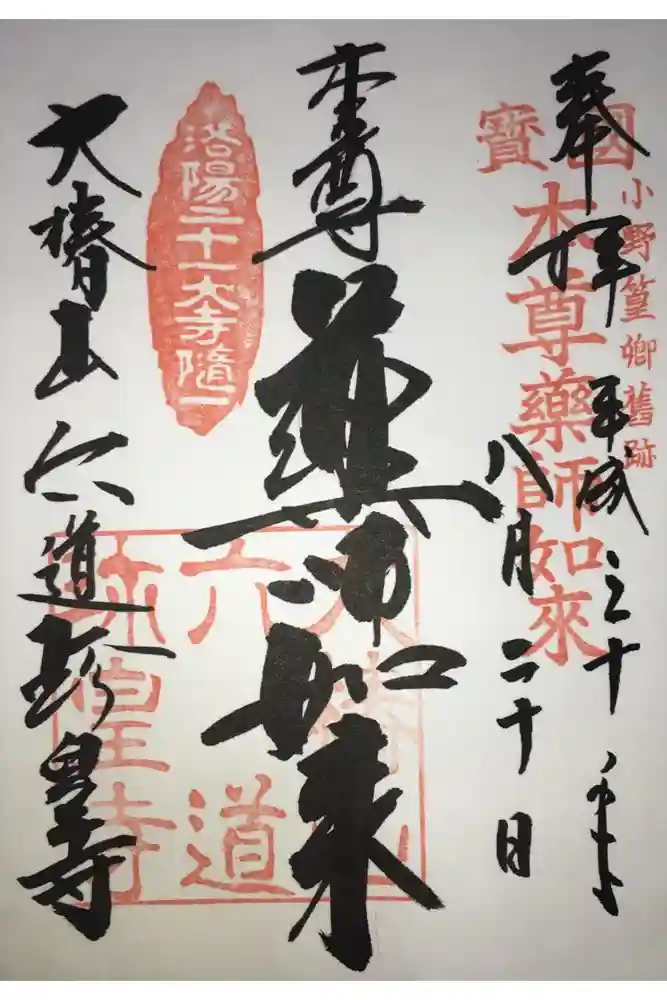 奉拝
平成三十年
八月二十日
國寶
小野篁卿舊跡
本尊藥師如來
本尊
薬師如来
洛陽二十一大寺随一
大椿山
六道
珍皇寺
大椿山六道珍皇寺